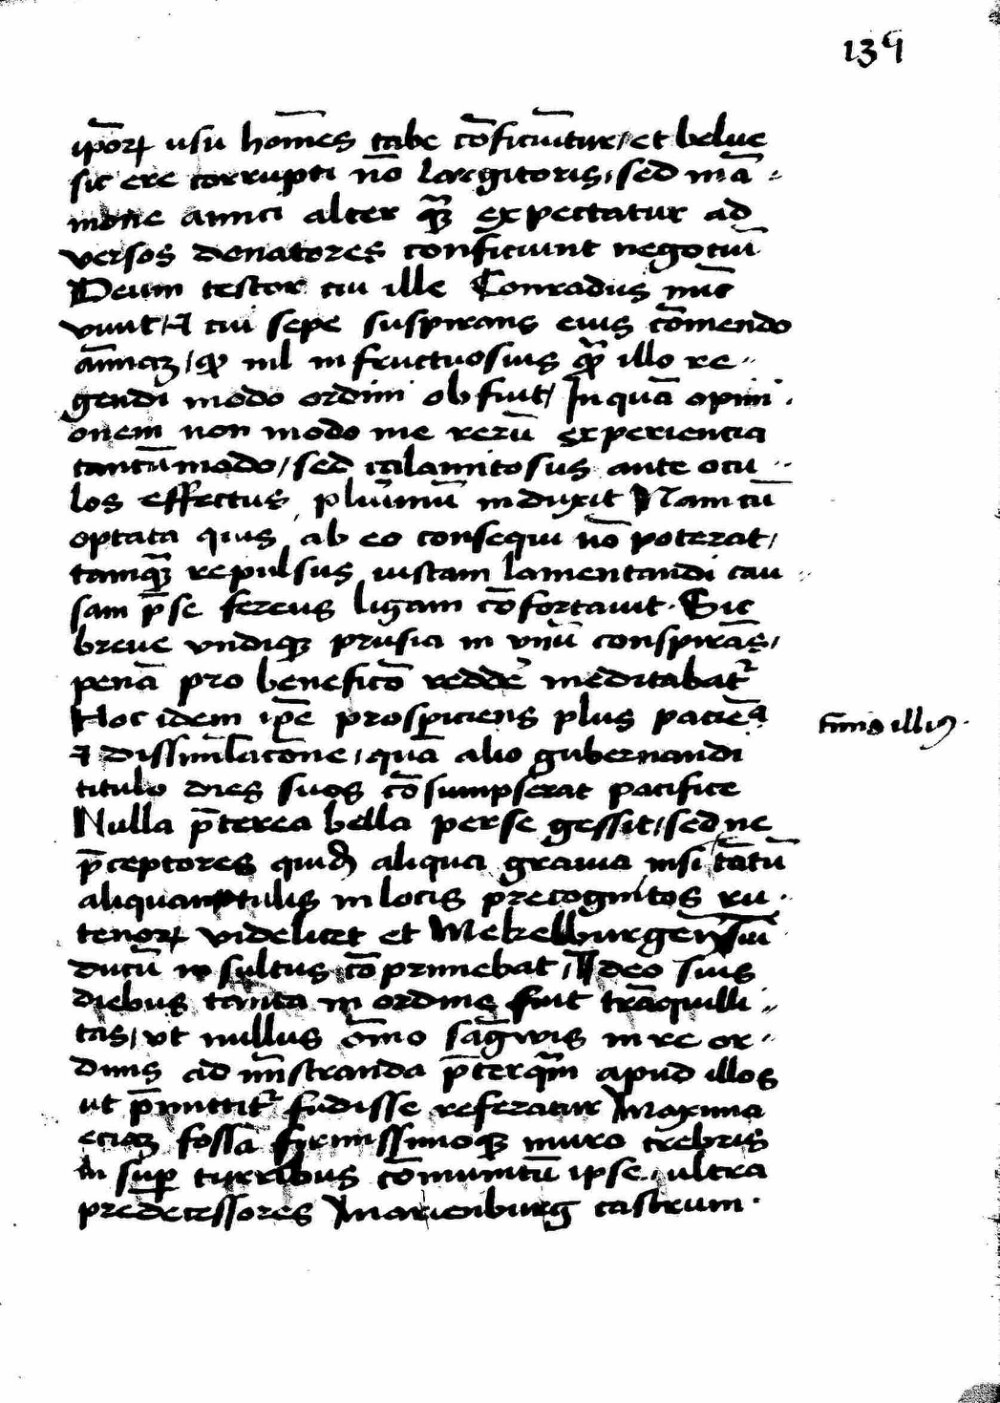 139
ip̄oꝝ usu hom̄es tabe cōficiūtur / et belue
sic ere corrupti nō largitoris, sed mā-
mone amici alter qꝫ̄ expectatur ad
versos denatores conficiunt negociū
Deum testor cui ille Conradus nūc
vivit / ⁊ cui sepe suspirans eius cōmendo
āimaꝫ / ꝙ nil infructuosius qꝫ̄ illo re-
gendi modo ordini obfuit / In quā opini-
onem non modo me rerū experiencia
tantūmodo / sed calamitosus ante ocu-
los effectus pluīmū induxit Nam cū
optata quis ab eo consequi nō poterat /
tamqꝫ̄ repulsus iustam lamentandi cau-
sam p̄ se ferens ligam cōfortavit. Sic
breve undiqꝫ prusia in unū conspirās /
penā pro beneficō reddē meditabat᷑
Hoc idem ip̄e prosꝑiciens plus paciēa
⁊ dissimīlacōne, quā alio gubernandi
titulo dies suos cōsumpserat pacifice
tīmo illiꝰ.
Nulla p̄terea bella per se gessit / sed ne
p̄ceptores quidē aliqua gravia nisi tātū
aliquantulis in locis precognitos ru-
tenoꝝ videlicet et Mekelburgensiū
ducū insultus cōprimebat / Ideo suis
diebus tanta in ordine fuit trāquilli-
tas / ut nullus ōmo sāgwis in re or-
dinis ad mīstranda p̄terqꝫ̄ apud illos
ut p̄mittit᷑ fudisse referatur Maxima
eciaꝫ fossā firmissimoqꝫ muro crebris
insuꝑ turribus cōmunitū ipse, ultra
predecessores Marienburg castrum.